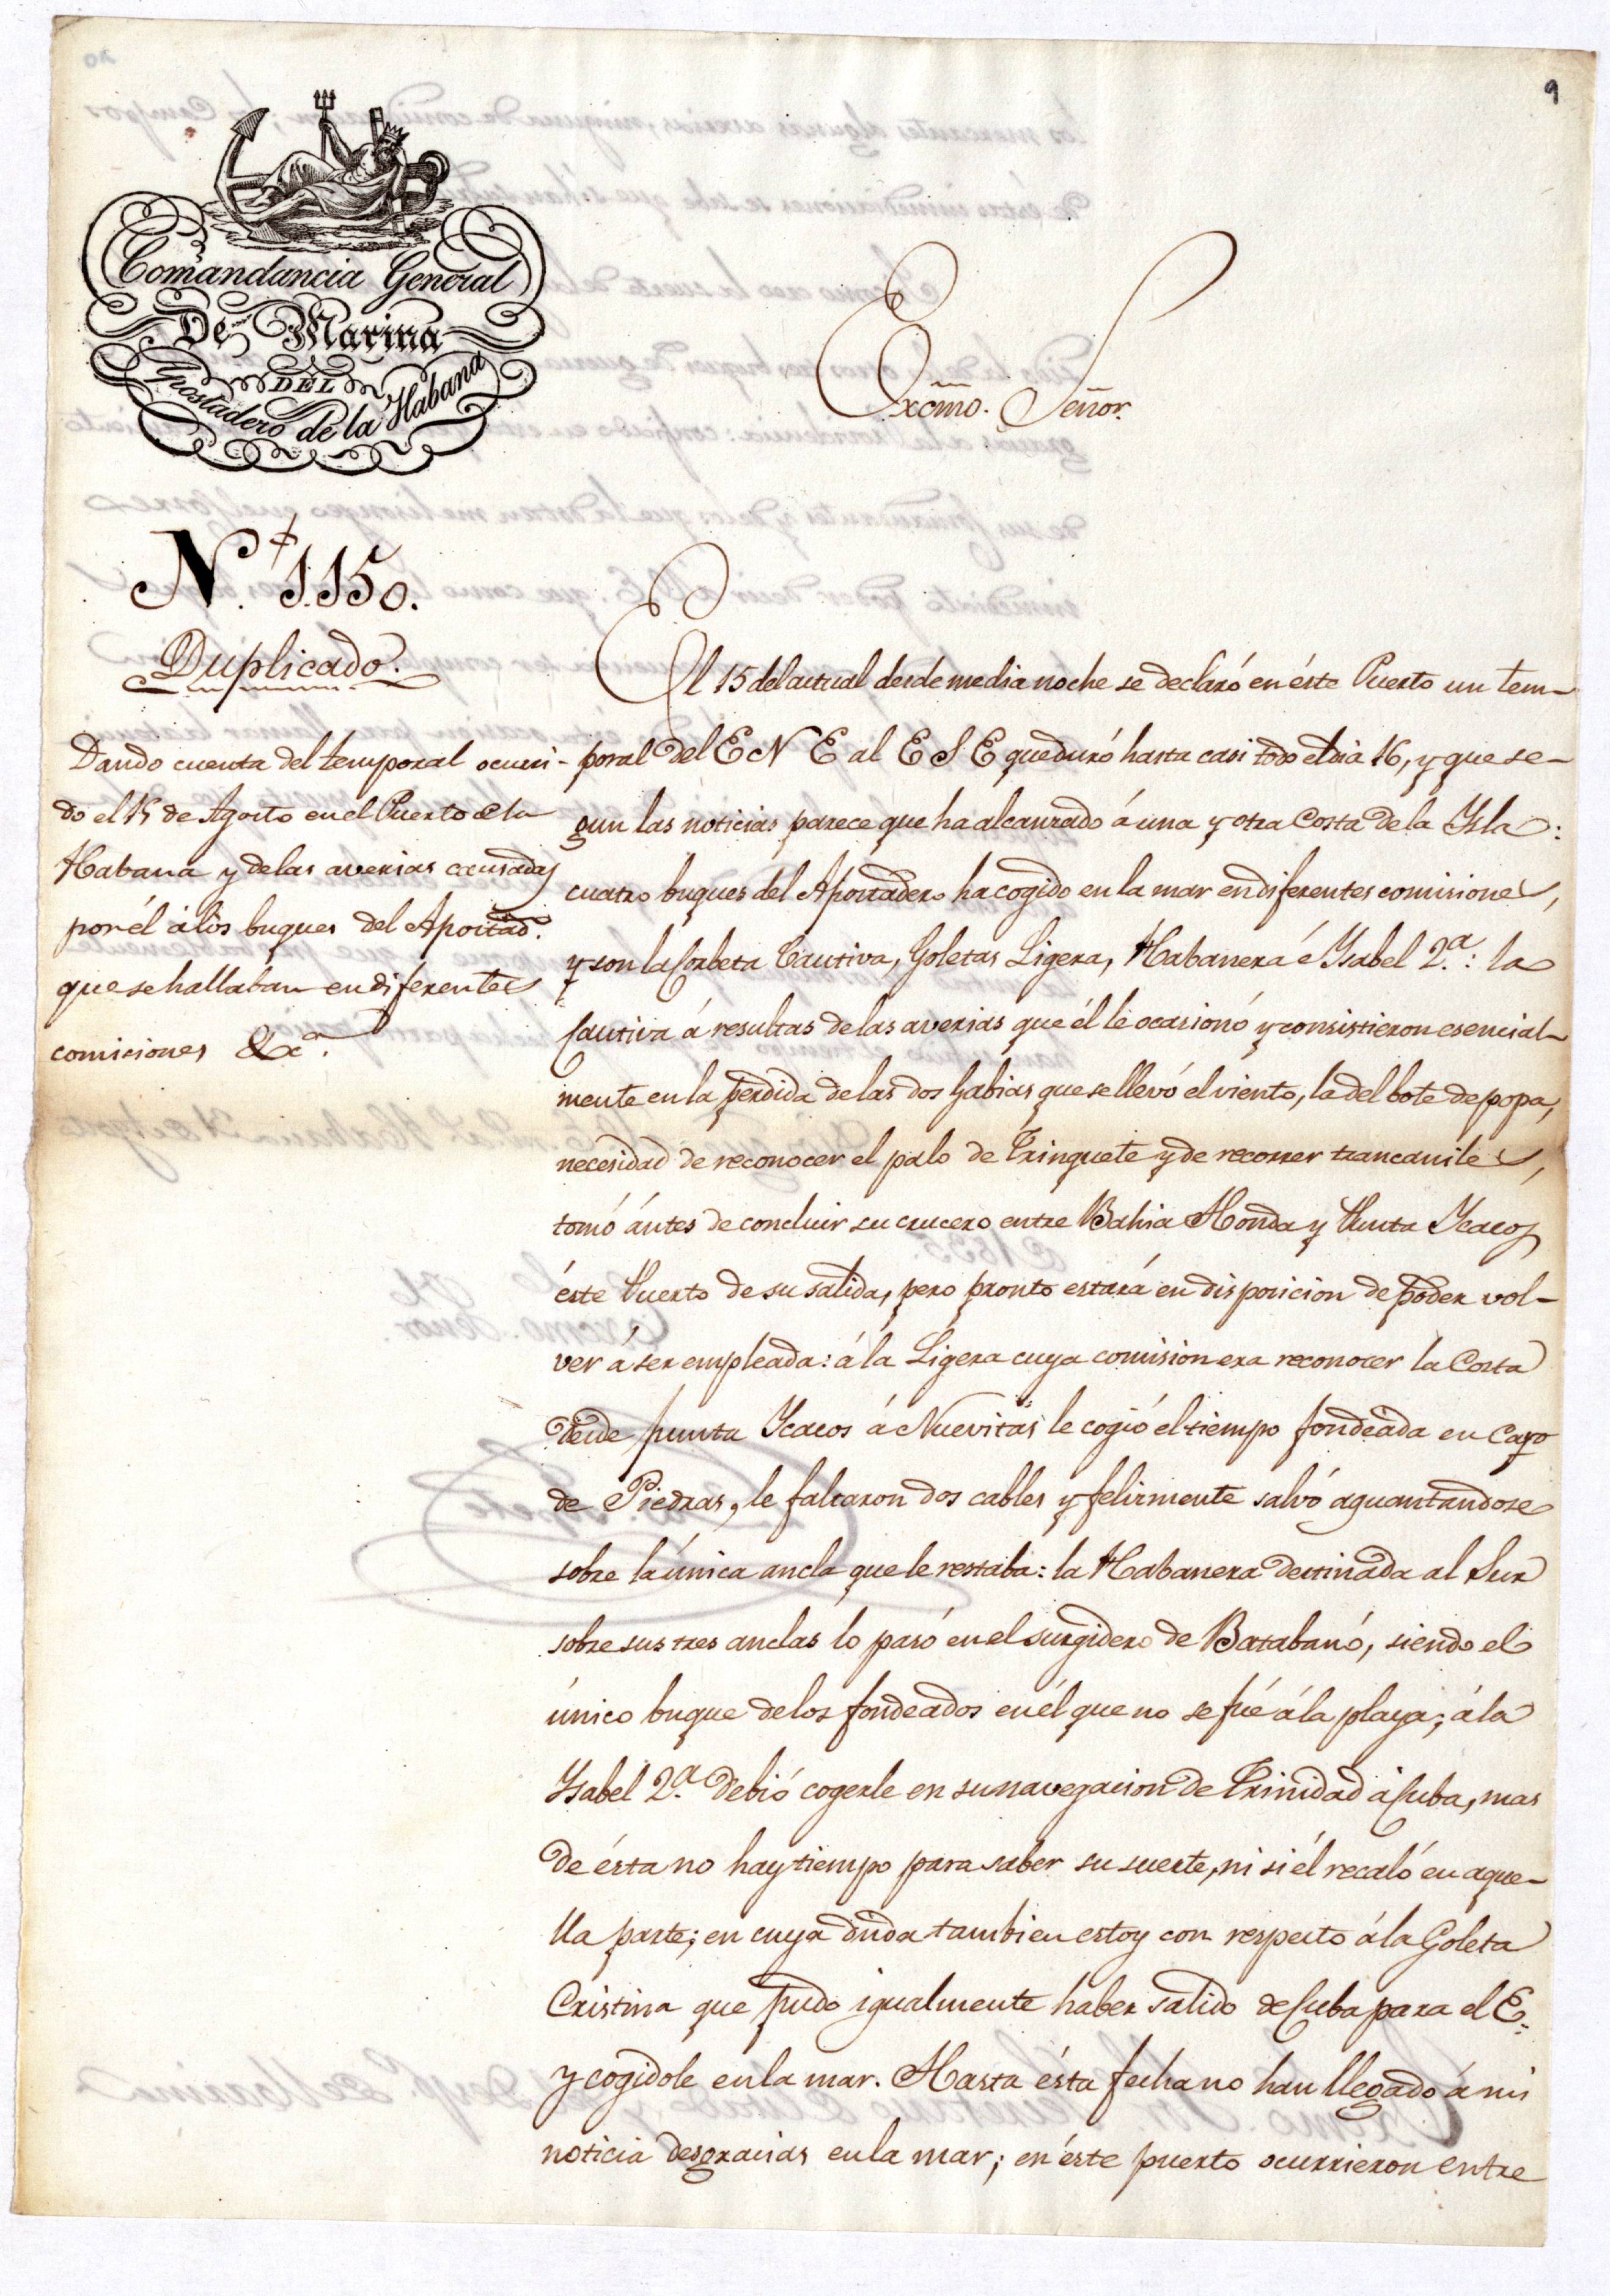 9
Comandancia General
De Marina
DEL
Apostadero de la Habana
Excmo. Señor.
N. 1.150.
Duplicado.
Dando cuenta del temporal ocurri-
do el 15 de Agosto en el Puerto de la
Habana y de las averias causadas
por él á los buques del Apostad.
que se hallaban en diferentes
comiciones &c.ª
El 15 del actual desde media noche se declaró en éste Puerto un tem-
poral del E N E al E S E que duró hasta casi todo el dia 16, y que se-
gun las noticias parece que ha alcanzado á una y otra Costa de la Ysla:
cuatro buques del Apostadero ha cogido en la mar en diferentes comisiones,
y son la Corbeta Cautiva, Goletas Ligera, Habanera é Ysabel 2.ª: la
Cautiva á resultas de las averias que él le ocasionó y consistieron esencial-
mente en la perdida de las dos Gabias que se llevó el viento, la del bote de popa,
necesidad de reconocer el palo de Trinquete y de recorrer trancaniles,
tomó ántes de concluir su crucero entre Bahia Honda y Punta Ycacos
éste Puerto de su salida, pero pronto estará en disposicion de poder vol-
ver á ser empleada: á la Ligera cuya comision era reconocer la Costa
desde punta Ycacos á Nuevitas le cogió el tiempo fondeada en Cayo
de Piedras, le faltaron dos cables y felizmente salvó aguantandose
sobre la única ancla que le restaba: la Habanera destinada al Sur
sobre sus tres anclas lo pasó en el surgidero de Batabanó, siendo el
único buque de los fondeados en él que no se fué á la playa; á la
Ysabel 2.ª debió cogerle en su navegacion de Trinidad á Cuba, mas
de ésta no hay tiempo para saber su suerte, ni si él recaló en aque-
lla parte; en cuya duda tambien estoy con respecto á la Goleta
Cristina que pudo igualmente haber salido de Cuba para el E.
y cogidole en la mar. Hasta ésta fecha no han llegado á mi
noticia desgracias en la mar; en éste puerto ocurrieron entre